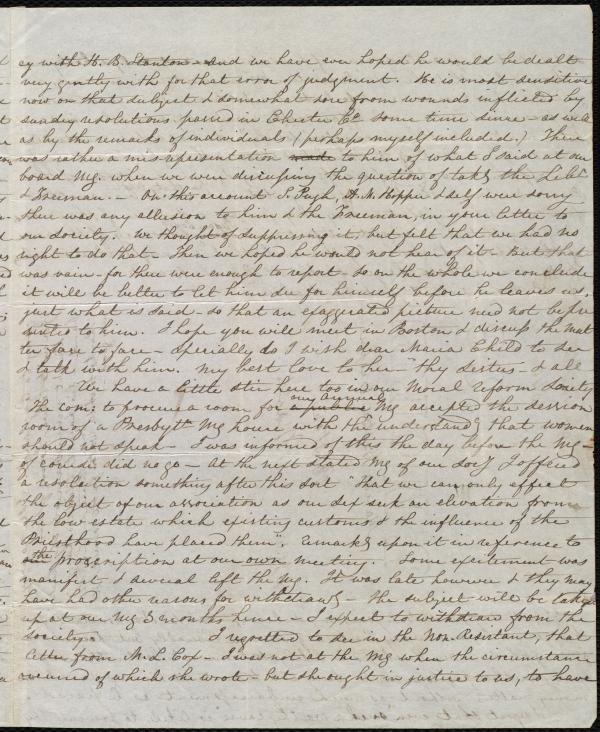 ey with H. B. Stanton – and we have ever hoped he would be dealt
very gently with for that error of judgment. He is most sensitive
now on that subject & somewhat sore from wounds inflicted by
sundry resolutions passed in Chester Co. some time since – as well
as by the remarks of individuals (perhaps myself included.) There
was rather a misrepresentation made to him of what I said at our
board Mg. when we were discussing the question of takg the Libr
& Freeman. – On this account S. Pugh, A. M. Hopper & self were sorry
there was any allusion to him & the Freeman, in your letter to
our society. We thought of suppressing it, but felt that we had no
right to do that – then we hoped he would not hear of it – But that
was vain – for there were enough to report – so on the whole we conclude
it will be better to let him see for himself before he leaves us,
just what is said – so that an exaggerated picture need not be pre
sented to him. I hope you will meet in Boston & discuss the mat
ter face to face – specially do I wish dear Maria Child to see
& talk with him. My best love to her – thy sisters – & all
We have a little stir here too in our Moral Reform Society
The com: to procure a room for a public our annual Mg accepted the session
room of a Presbytn Mg house with the understandg that women
should not speak – I was informed of this the day before the Mg –
of course did no go – At the next stated Mg of our socy I offered
a resolution something after this sort "That we can only effect
the object of our association as our sex seek an elevation from
the low estate which existing customs & the influence of the
Priesthood have placed them". Remarkg upon it in reference to
the proscription at our own meeting. Some excitement was
manifest & several left the Mg. It was late however & they may
have had other reasons for withdrawg – the subject will be taken
up at our Mg 3 months hence – I expect to withdraw from the
Society. I regretted to see in the Non-Resistant, that
letter from M. L. Cox – I was not at the Mg when the circumstance
occurred of which she wrote – but she ought in justice to us, to have